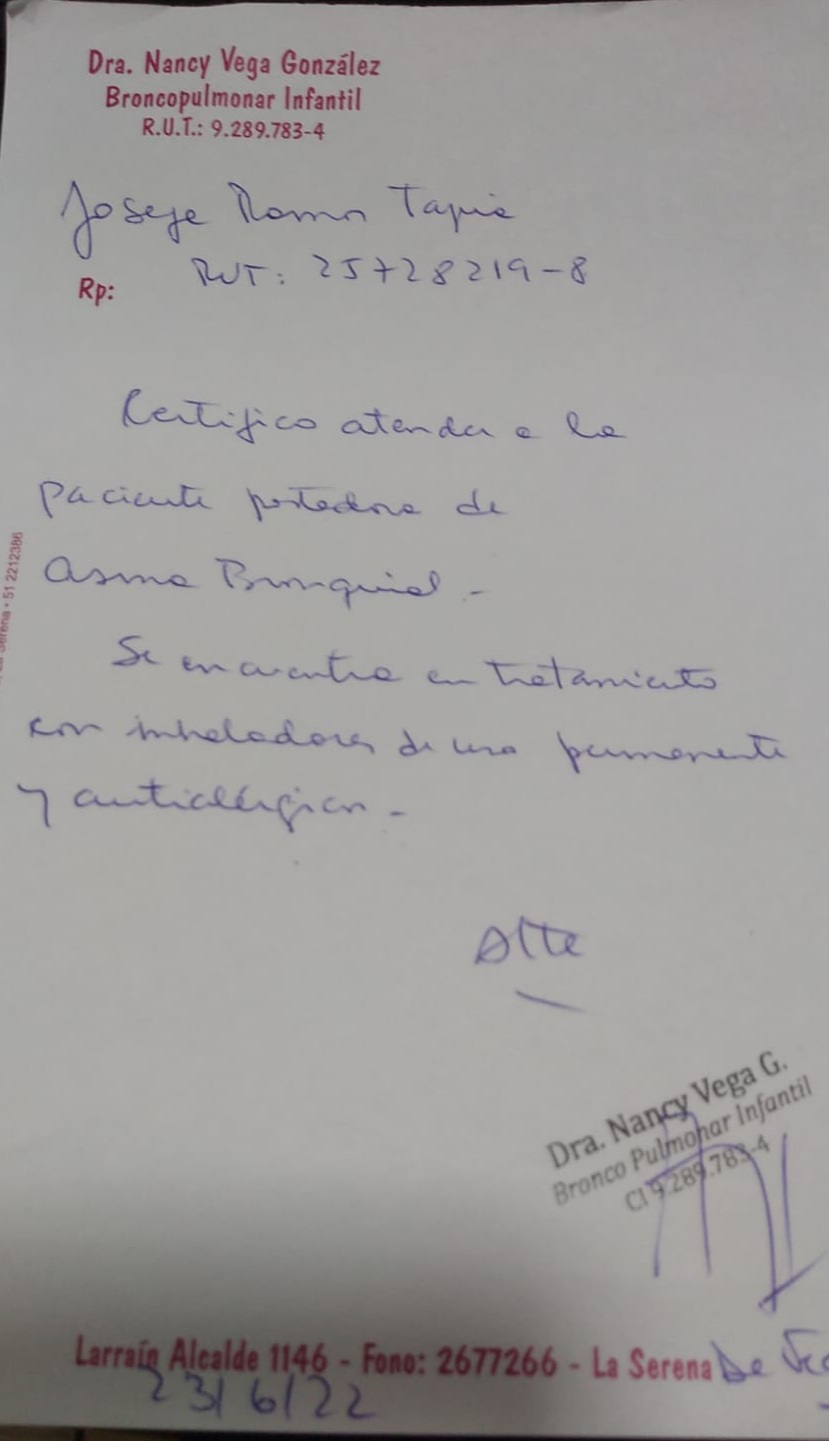 Dra. Nancy Vega González
Broncopulmonar Infantil
R.U.T.: 9.289.783-4
Tapia
Rp:
RUT: 25728219-8
Certifico atender a la
paciente portadora de
Asma Bronquial.-
Se encuentra en tratamiento
con inhaladores de uso permanente
y antialérgicos.-
Atte
Dra. Nancy Vega G.
Bronco Pulmonar Infantil
CI 9.289.783-4
Larraín Alcalde 1146 - Fono: 2677266 - La Serena
23/6/22
Serena • 51 2212386